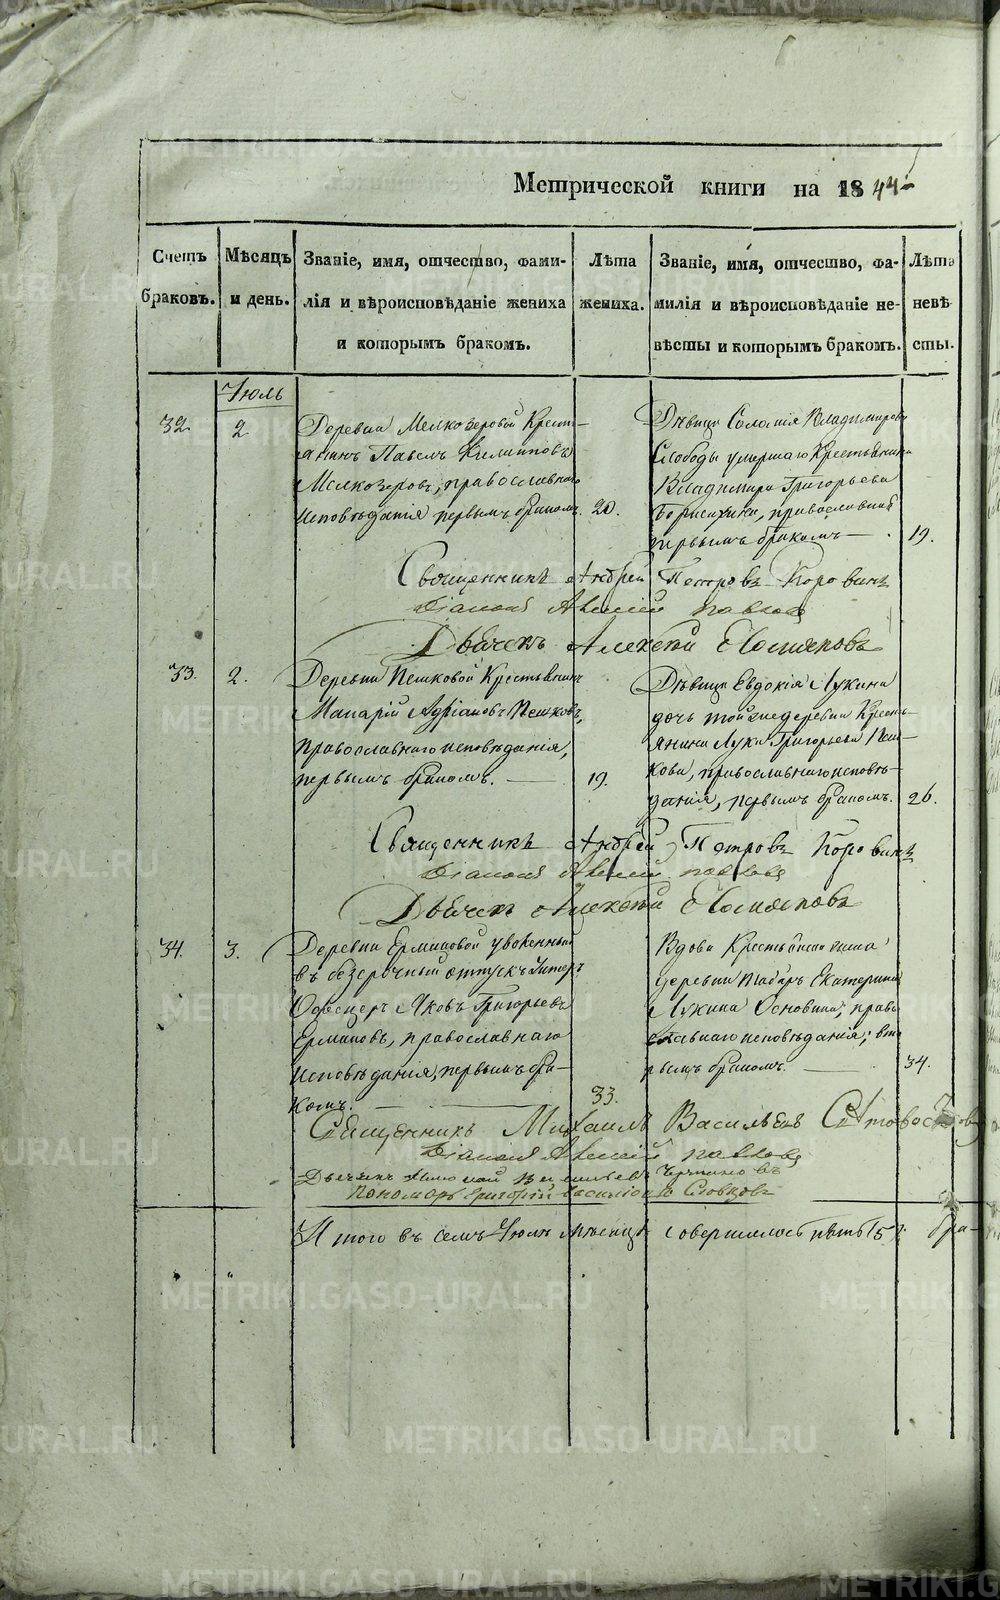 Метрической книги на 1844
Счетъ браковъ.
Мѣсяцъ и день.
Званіе, имя, отчество, фами-
лія и вѣроисповѣданіе жениха
и которымъ бракомъ.
Лѣта
жениха.
Званіе, имя, отчество, фа-
милія и вѣроисповѣданіе не-
вѣсты и которымъ бракомъ.
Лѣта
невѣ-
сты.
Іюль
32
2
Деревни Мелкозеровой Кресть-
янинъ Павелъ Филиповъ
Мелкозеровъ, православнаго
исповѣданія первымъ бракомъ.
20.
Дѣвица Соломія Владимирова
Слободы умершаго Крестьянина
Владимира Григорьева
православнаго
первымъ бракомъ
19.
Священникъ Андрей Петровъ Коровинъ
Діаконъ Алексій Павловъ
Дьячекъ Алексѣй
33.
2.
Деревни Пешковой Крестьянинъ
Макарій Адріановъ Пешковъ,
православнаго исповѣданія,
первымъ бракомъ.
19.
Дѣвица Евдокія Лукина
дочь той же деревни Кресть-
янина Луки Григорьева Пеш-
кова, православнаго исповѣ-
данія, первымъ бракомъ.
26.
Священникъ Андрей Петровъ Коровинъ
Діаконъ Алексій Павловъ
Дьячекъ Алексѣй
34.
3.
Деревни Ермиловой уволенный
въ безсрочный отпускъ Унтеръ
Офецеръ Яковъ Григорьевъ
православнаго
исповѣданія, первымъ бра-
комъ.
33.
Вдова Крестьянская жена
деревни Табаръ Екатерина
Лукина Основина, право
славнаго исповѣданія, вто
рымъ бракомъ.
34.
Священникъ Михаилъ Васильевъ
Діаконъ Алексій Павловъ
Дьячекъ Николай Васильевъ
Пономарь Григорій Словцовъ
Итого въ семъ Іюлѣ мѣсяцѣ совершилось пять 5 бра-
METRIKI.GASO-URAL.RU